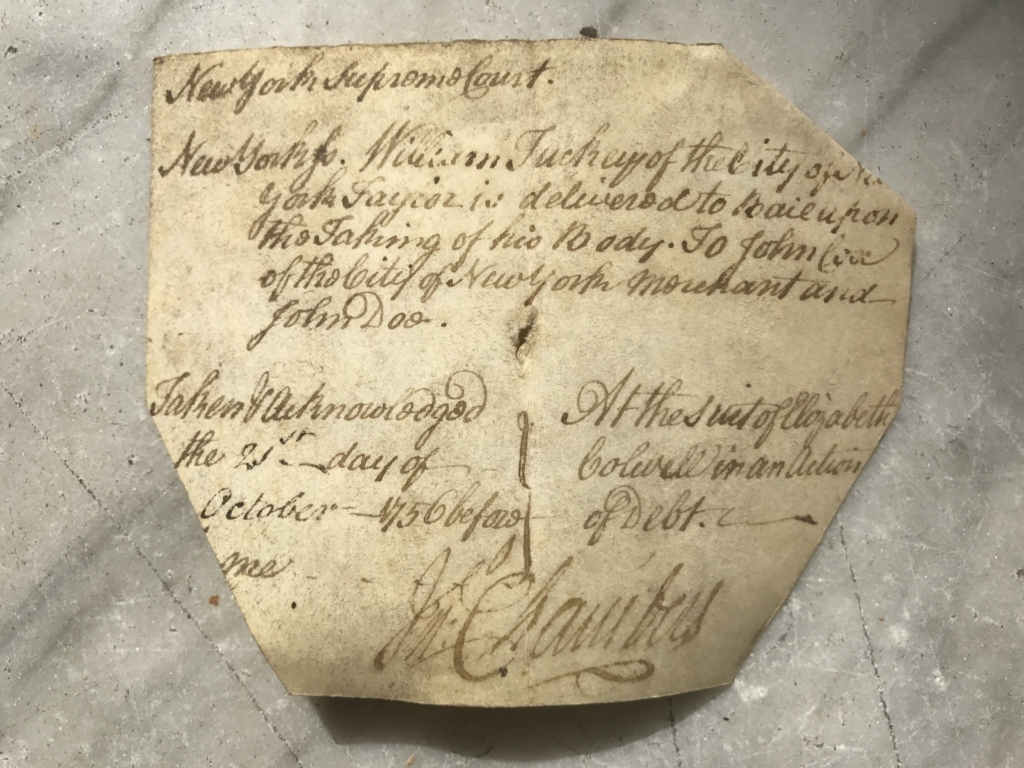 New York Supreme Court.
New York ss. William Tuckey of the City of
York Taylor is delivered to Bail upon
the Taking of his Body. To John
of the City of New York Merchant and
John Doe.
Taken & Acknowledged
the 21st day of
October 1756 before
me
At the suit of Elizabeth
Colwell in an Action
of Debt.
Jn: Chambers